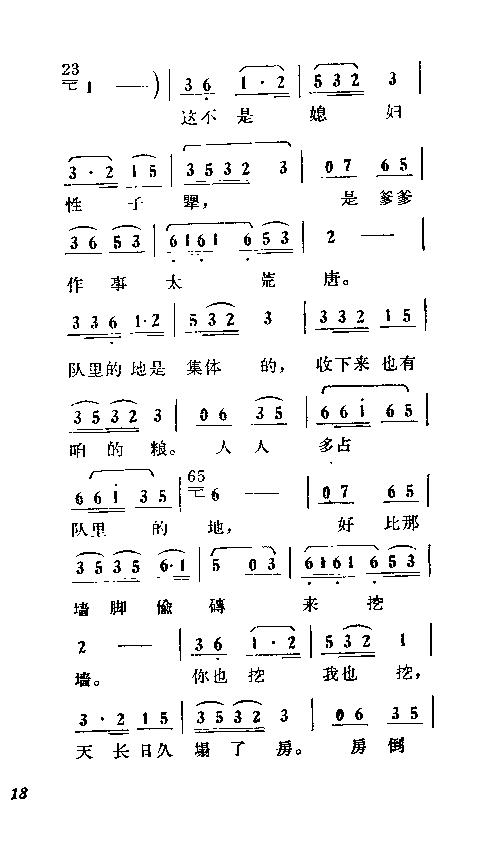 23
1 — ) | 3 6 1 · 2 | 5 3 2 3 |
这不 是 媳 妇
3 · 2 1 5 | 3 5 3 2 3 | 0 7 6 5 |
性 子 犟, 是 爹爹
3 6 5 3 | 6 1 6 1 6 5 3 | 2 — |
作 事 太 荒 唐。
3 3 6 1·2 | 5 3 2 3 | 3 3 2 1 5 |
队里的 地是 集体 的, 收下来 也有
3 5 3 2 3 | 0 6 3 5 | 6 6 i 6 5 |
咱 的 粮。 人 人 多占
6 6 i 3 5 | 65 6 — | 0 7 6 5 |
队里 的 地, 好 比那
3 5 3 5 6·1 | 5 0 3 | 6 1 6 1 6 5 3 |
墙 脚 偷 砖 来 挖
2 — | 3 6 1 · 2 | 5 3 2 1 |
墙。 你也 挖 我也 挖,
3 · 2 1 5 | 3 5 3 2 3 | 0 6 3 5 |
天 长 日久 塌 了 房。 房 倒
18